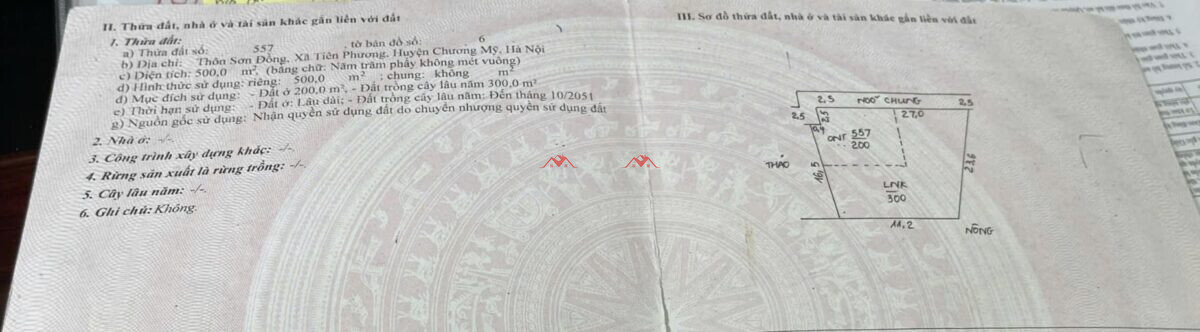 II. Thửa đất, nhà ở và tài sản khác gắn liền với đất
1. Thửa đất:
a) Thửa đất số: 557 , tờ bản đồ số: 6
b) Địa chỉ: Thôn Sơn Đồng, Xã Tiên Phương, Huyện Chương Mỹ, Hà Nội
c) Diện tích: 500,0 m², (bằng chữ: Năm trăm phẩy không mét vuông)
d) Hình thức sử dụng: riêng: 500,0 m² ; chung: không m²
đ) Mục đích sử dụng: - Đất ở 200,0 m², - Đất trồng cây lâu năm 300,0 m²
e) Thời hạn sử dụng: - Đất ở: Lâu dài; - Đất trồng cây lâu năm: Đến tháng 10/2051
g) Nguồn gốc sử dụng: Nhận quyền sử dụng đất do chuyển nhượng quyền sử dụng đất
2. Nhà ở: -/-.
3. Công trình xây dựng khác: -/-.
4. Rừng sản xuất là rừng trồng: -/-.
5. Cây lâu năm: -/-.
6. Ghi chú: Không.
III. Sơ đồ thửa đất, nhà ở và tài sản khác gắn liền với đất
2,5 NGÕ CHUNG 2,5
2,5 2,5 27,0
ONT 557
200
THẢO 16,5 23,6
LNK
300
11,2
NÔNG